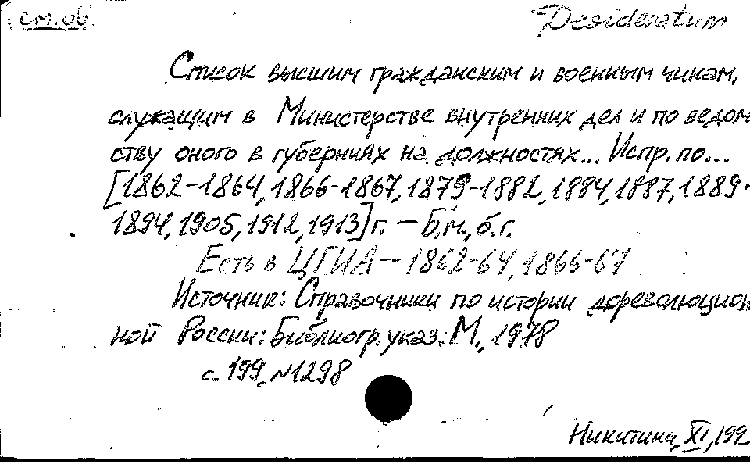 см. об. Desideratum
Список высшим гражданским и военным чинам,
служащим в Министерстве внутренних дел и по ведом-
ству оного в губерниях на должностях... Испр. по...
[1862-1864, 1866-1867, 1879-1882, 1884, 1887, 1889-
1894, 1905, 1912, 1913] г. — Б.м., б.г.
Есть в ЦГИА — 1862-64, 1866-67
Источник: Справочники по истории дореволюцион-
ной России: Библиогр. указ. М., 1978
с. 199, №1298
Никитина, XI, 192